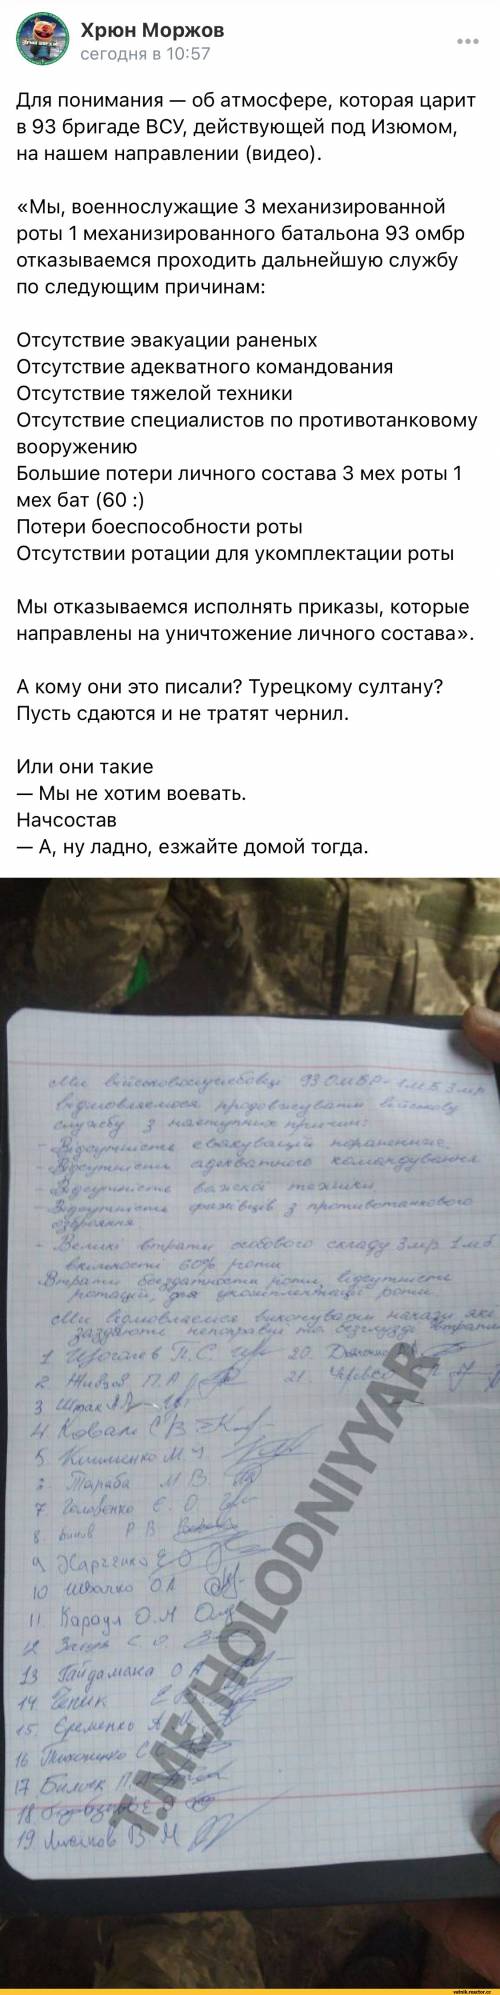 Хрюн Моржов
сегодня в 10:57
Для понимания — об атмосфере, которая царит
в 93 бригаде ВСУ, действующей под Изюмом,
на нашем направлении (видео).
«Мы, военнослужащие 3 механизированной
роты 1 механизированного батальона 93 омбр
отказываемся проходить дальнейшую службу
по следующим причинам:
Отсутствие эвакуации раненых
Отсутствие адекватного командования
Отсутствие тяжелой техники
Отсутствие специалистов по противотанковому
вооружению
Большие потери личного состава 3 мех роты 1
мех бат (60 :)
Потери боеспособности роты
Отсутствии ротации для укомплектации роты
Мы отказываемся исполнять приказы, которые
направлены на уничтожение личного состава».
А кому они это писали? Турецкому султану?
Пусть сдаются и не тратят чернил.
Или они такие
— Мы не хотим воевать.
Начсостав
— А, ну ладно, езжайте домой тогда.
Ми військовослужбовці 93 ОМБР 1 МБ 3 мр
відмовляємося продовжувати військову
службу з наступних причин:
- Відсутність евакуації
- Відсутність адекватного командування
- Відсутність важкої техніки
- Відсутність фахівців з протитанкового
озброєння
- Великі втрати особового складу 3 мр 1 мб
60% роти
Втрати роти, відсутність
ротації, для укомплектації роти.
Ми відмовляємося виконувати накази які
втрати
1 П.С. 20.
2 П.А 21.
3
4 Коваль С В
5 М.
6 Тараба М В.
7 Головенко Є. О.
8. Р В
9 Харченко Є О
10 О.А
11 Караул О.А
12 С. О.
13 Гайдамака О А
14
15. Єременко А
16 С
17 П
18
19. В М
T.ME/HOLODNIYYAR
vatnik.reactor.cc